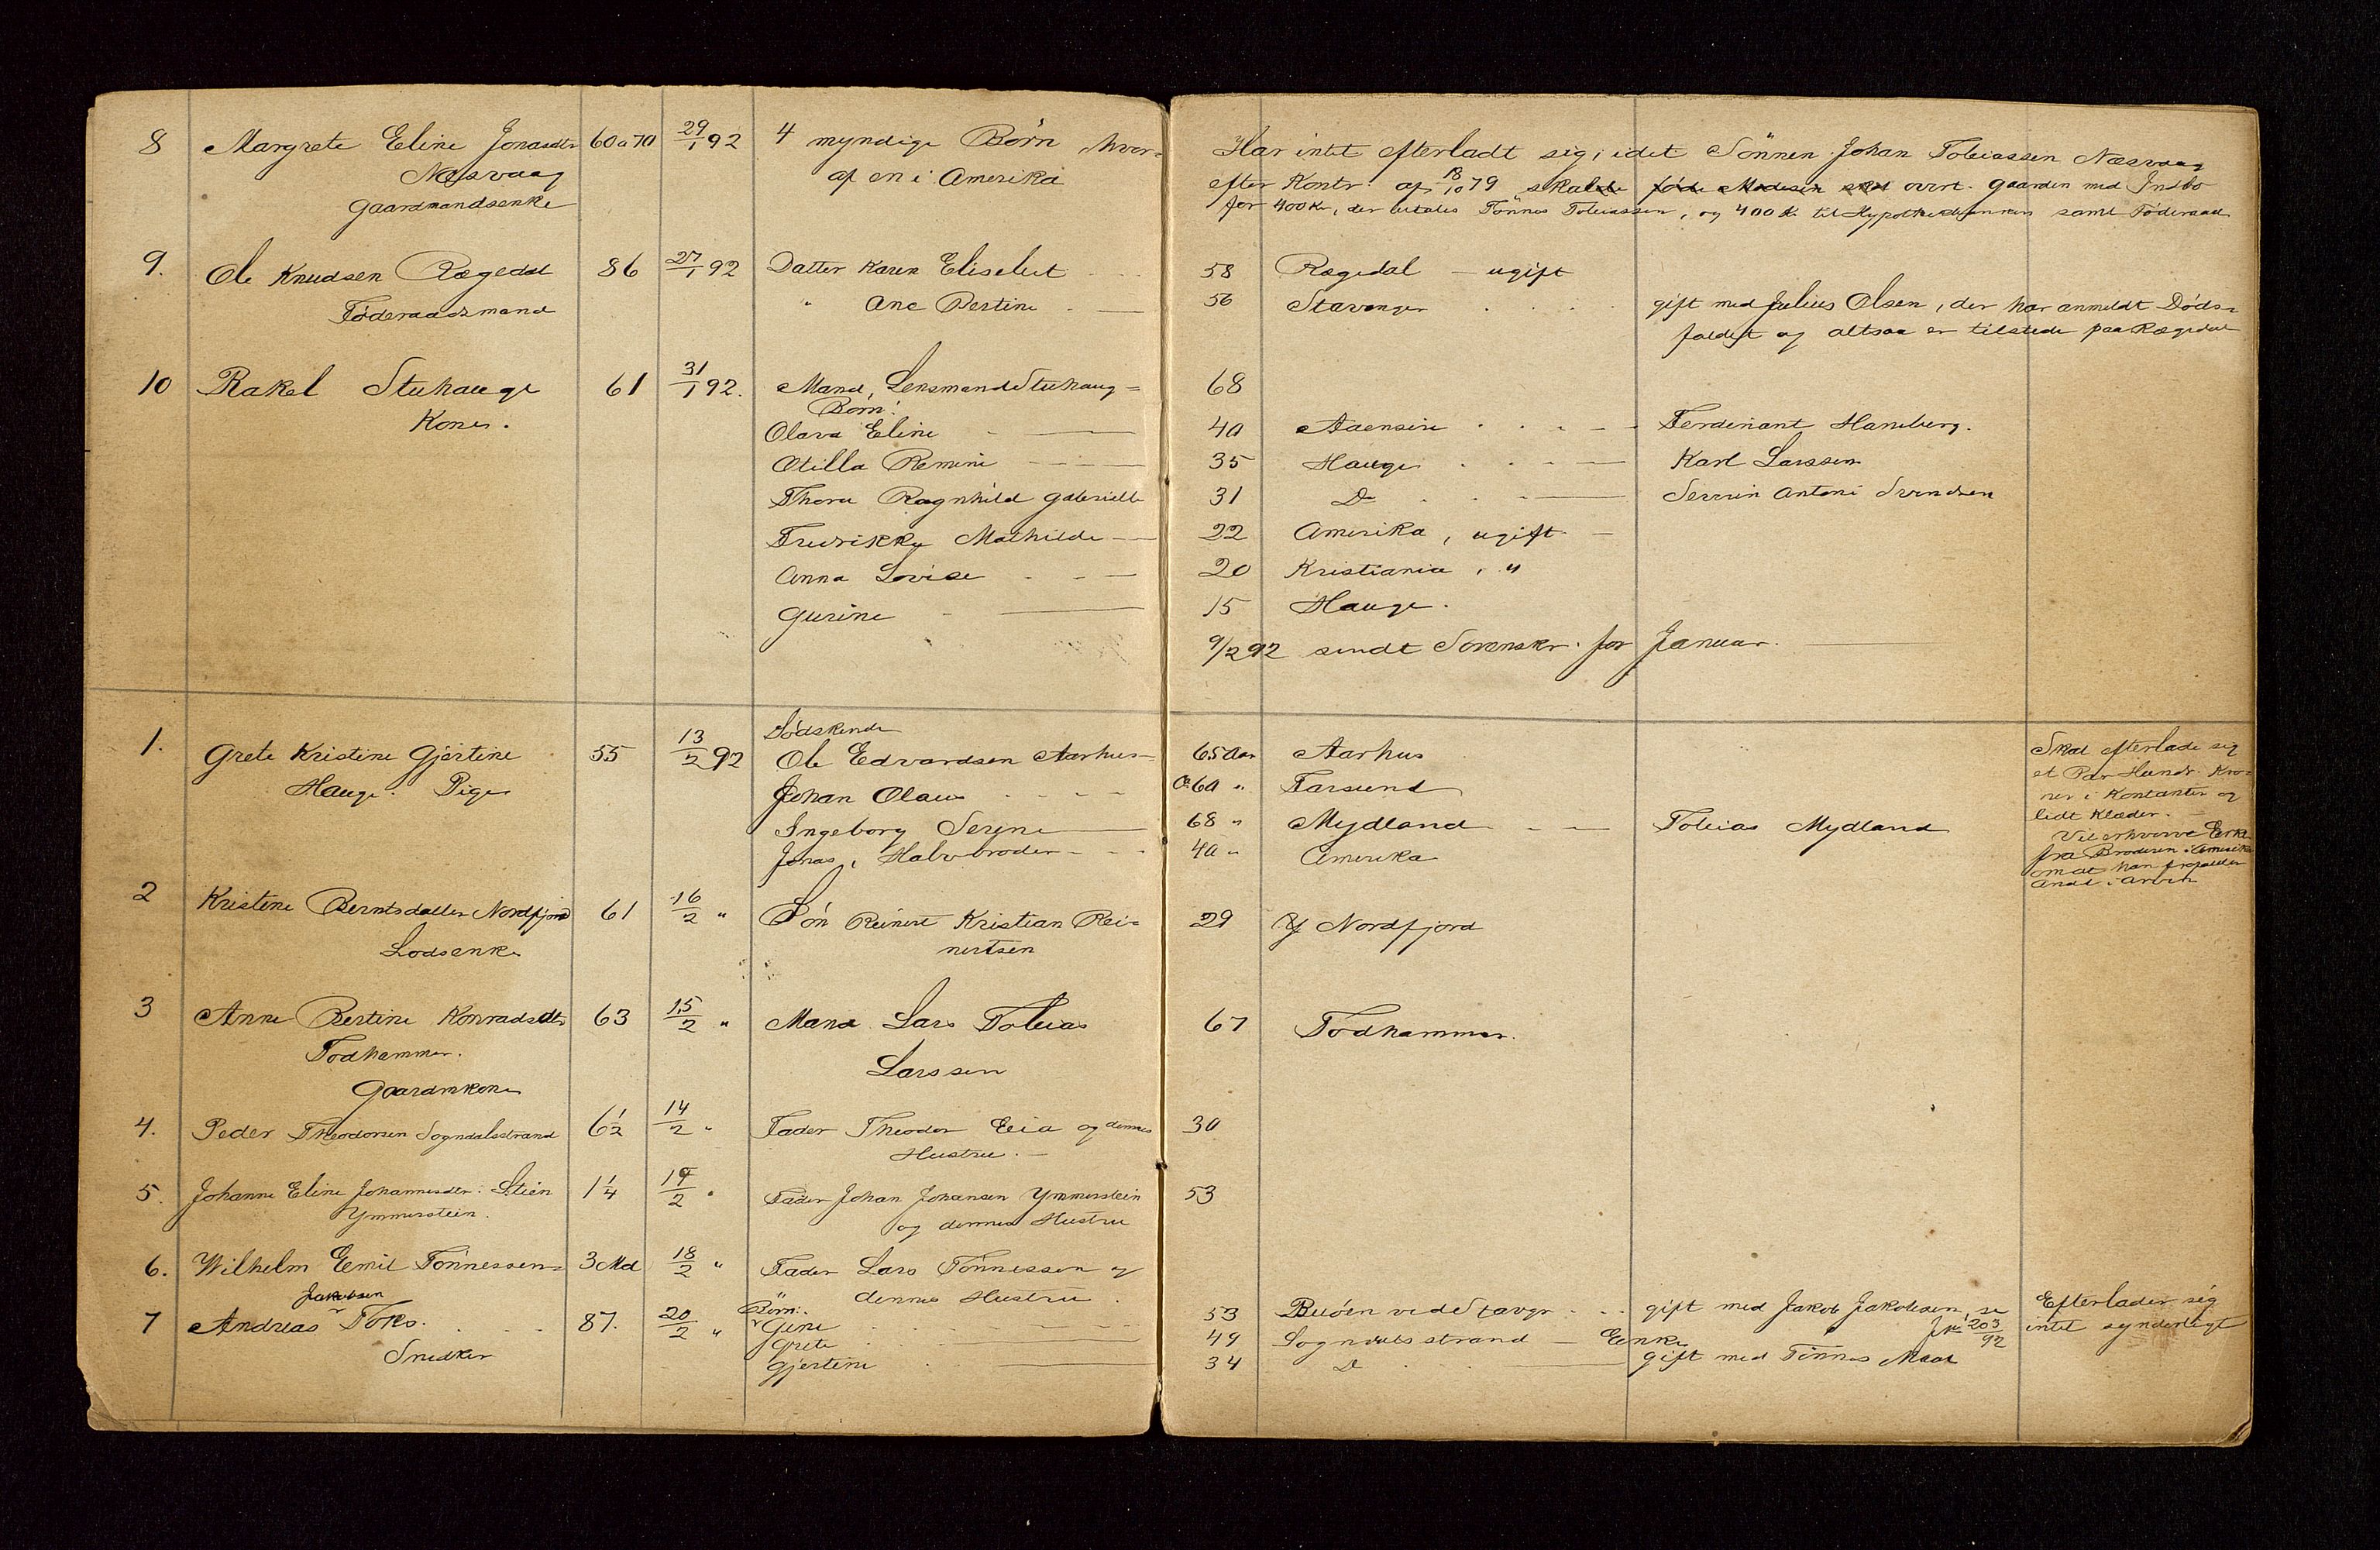 8 Margrete Eline Jonasdtr 60 a 70 29/1 92 4 myndige Børn, hvor- Har intet efterladt sig, idet Sønnen Johan Tobiassen Næsvaag
Næsvaag af en i Amerika efter Kontr. af 18/10 79 skulde føde Moderen overt. Gaarden med Indbo
Gaardmandsenke for 400 Kr, der betales Tønnes Tobiassen, og 400 Kr til Hypothekbanken samt Føderaad
9. Ole Knudsen Rægedal 86 27/1 92 Datter Karen Elisebet 58 Rægedal - ugift
Føderaadsmand " Ane Bertine 56 Stavanger gift med Julius Olsen, der har anmeldt Døds-
faldet og altsaa er tilstede paa Rægedal
10 Rakel Stuhauge 61 31/1 92. Mand, Lensmand Stuhaug 68
Kone. Børn:
Olava Eline 40 Aaensire Ferdinant Haneberg.
Otilla Remine 35 Hauge Karl Larssen
Thora Ragnhild Gabrielle 31 Do Serrin Antoni Svendsen
Fredrikke Mathilde 22 Amerika, ugift
Anna Lovise 20 Kristiania, "
Gurine 15 Hauge.
9/2 92 sendt Sorenskr. for Januar.
1. Grete Kristine Gjertine 55 13/2 92 Sødskende
Hauge. Pige Ole Edvardsen Aarhus 65 Aar Aarhus
Johan Olaus Ca 60 " Farsund
Ingeborg Serine 68 " Mydland Tobias Mydland
Jonas, Halvbroder 40 " Amerika
Skal efterlade sig
et Par Hundr. Kro-
ner i Kontanter og
lidt Klæder.
Vil erhverve Erkl.
fra Broderen i Amerika
om at han frafalder
Andel i Arven
2 Kristine Berntsdatter Nordfjord 61 16/2 " Søn Reinert Kristian Rei- 29 Y Nordfjord
Lodsenke nertsen
3 Anne Bertine Konradsdtr 63 15/2 " Mand Lars Tobias 67 Fodhammer.
Fodhammer. Larssen
Gaardmkone
4. Peder Theodorsen Sogndalsstrand 6 1/2 14/2 " Fader Theodor Eia og dennes 30
Hustru.
5. Johanne Eline Johannesdtr. Stien 1 1/4 19/2 " Fader Johan Johansen Ymmerstein 53
Ymmerstein. og dennes Hustru
6. Wilhelm Emil Tønnessen 3 Md 18/2 " Fader Lars Tønnessen og
dennes Hustru.
7 Andreas Jakobsen Foks. 87. 20/2 " Børn:
Snedker Gine 53 Buøen ved Stavgr gift med Jakob Jakobsen, se
Jr 203/92
Grete 49 Sogndalsstrand - Enke
Gjertine 34 Do gift med Tønnes Moat
Efterlader sig
intet synderligt